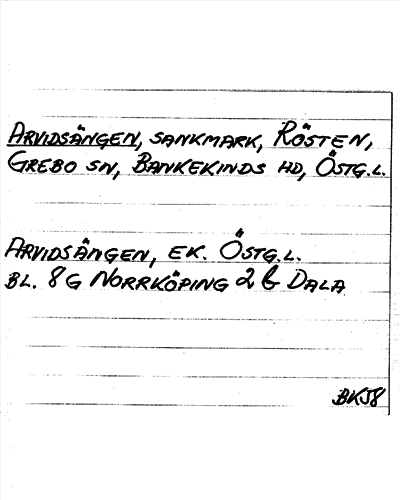 ARVIDSÄNGEN, SANKMARK, RÖSTEN,
GREBO SN, BANKEKINDS HD, ÖSTG.L.
ARVIDSÄNGEN, EK. ÖSTG.L.
BL. 8 G NORRKÖPING 2 b DALA
BKJ8